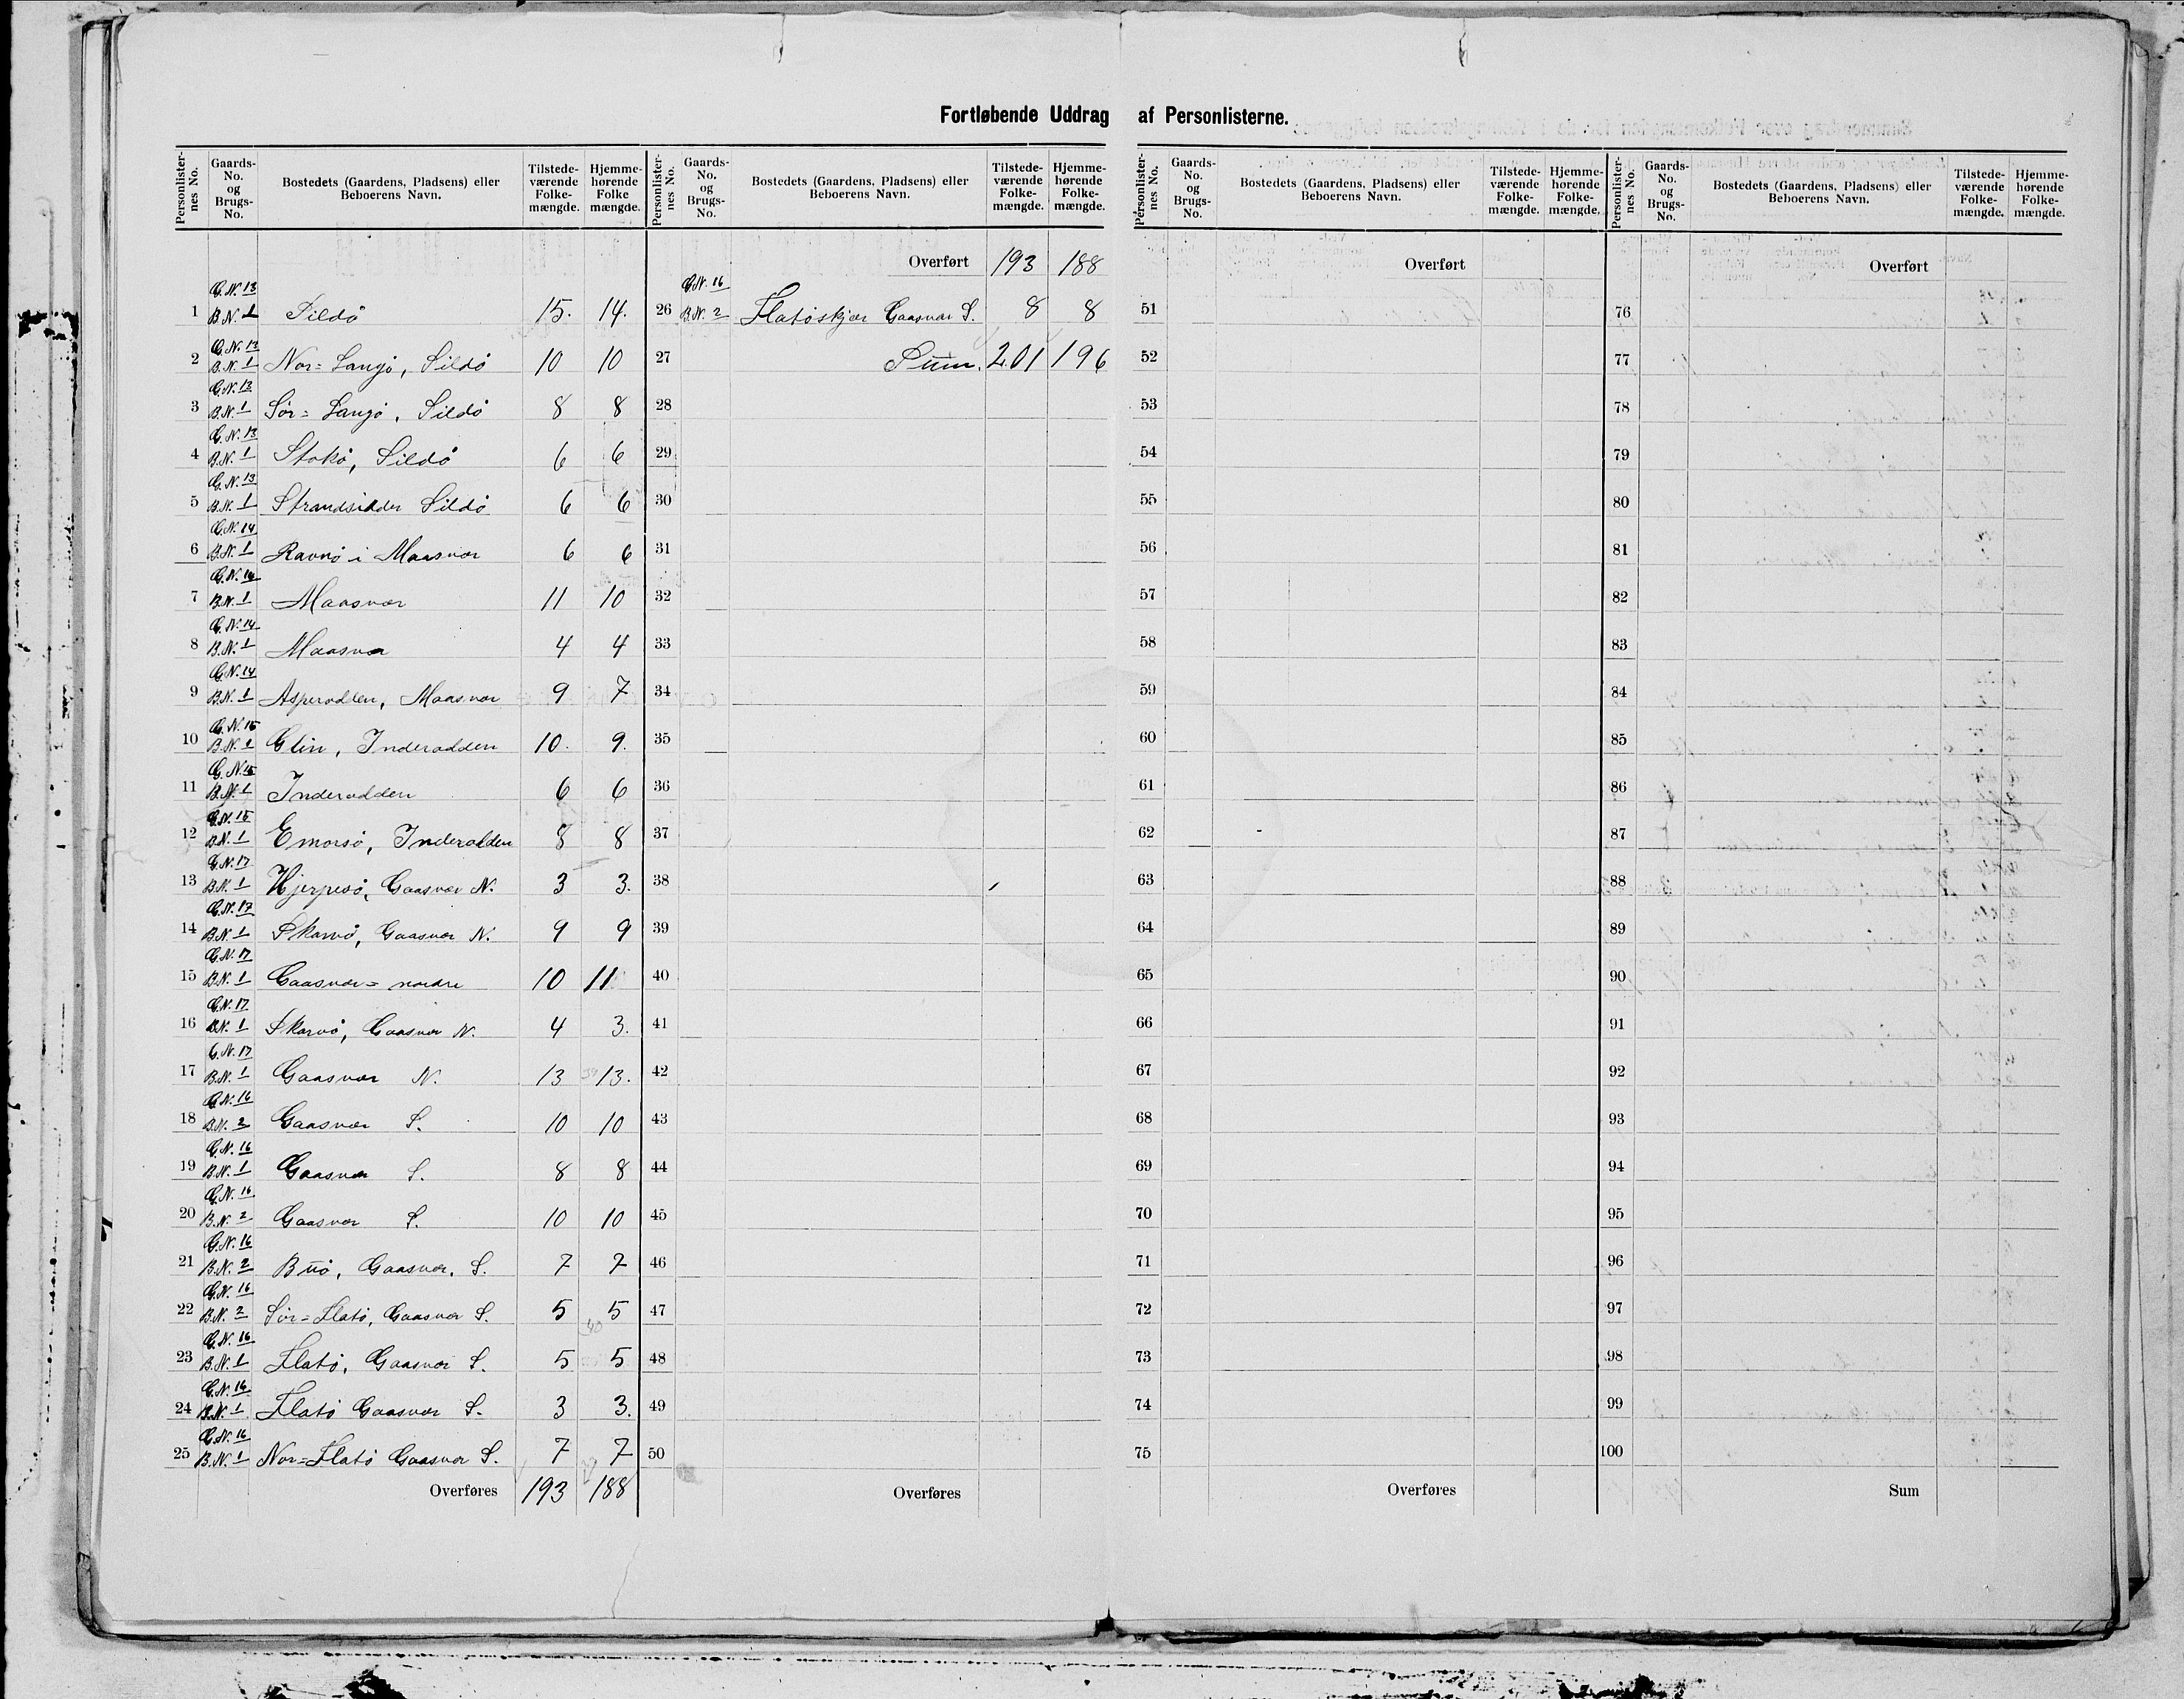 Fortløbende Uddrag af Personlisterne.
Personlisternes No. | Gaards-No. og Brugs-No. | Bostedets (Gaardens, Pladsens) eller Beboerens Navn. | Tilstedeværende Folkemængde. | Hjemmehørende Folkemængde.
1 | G.N. 13 B.N. 1 | Sildø | 15. | 14.
2 | G.N. 13 B.N. 1 | Nor= Langø, Sildø | 10 | 10
3 | G.N. 13 B.N. 1 | Sør= Langø, Sildø | 8 | 8
4 | G.N. 13 B.N. 1 | Stokø, Sildø | 6 | 6
5 | G.N. 13 B.N. 1 | Strandsidder Sildø | 6 | 6
6 | G.N. 14 B.N. 1 | Ravnø i Maasvær | 6 | 6
7 | G.N. 14 B.N. 1 | Maasvær | 11 | 10
8 | G.N. 14 B.N. 1 | Maasvær | 4 | 4
9 | G.N. 14 B.N. 1 | Asperodden, Maasvær | 9 | 7
10 | G.N. 15 B.N. 1 | Glin, Inderodden | 10. | 9.
11 | G.N. 15 B.N. 1 | Inderodden | 6 | 6
12 | G.N. 15 B.N. 1 | Emorsø, Inderodden | 8 | 8
13 | G.N. 17 B.N. 1 | Hjerpesø, Gaasvær N. | 3 | 3.
14 | G.N. 17 B.N. 1 | Skarvø, Gaasvær N. | 9 | 9
15 | G.N. 17 B.N. 1 | Gaasvær= nordre | 10 | 11
16 | G.N. 17 B.N. 1 | Skarvø, Gaasvær N. | 4 | 3.
17 | G.N. 17 B.N. 1 | Gaasvær N. | 13 | 13.
18 | G.N. 16 B.N. 2 | Gaasvær S. | 10 | 10
19 | G.N. 16 B.N. 1 | Gaasvær S. | 8 | 8
20 | G.N. 16 B.N. 2 | Gaasvær S. | 10 | 10
21 | G.N. 16 B.N. 2 | Buø, Gaasvær, S. | 7 | 7
22 | G.N. 16 B.N. 2 | Sør=Flatø, Gaasvær S. | 5 | 5
23 | G.N. 16 B.N. 1 | Flatø, Gaasvær S. | 5 | 5
24 | G.N. 16 B.N. 1 | Flatø Gaasvær S. | 3 | 3.
25 | G.N. 16 B.N. 1 | Nor=Flatø Gaasvær S. | 7 | 7
Overføres | 193 | 188
Personlisternes No. | Gaards-No. og Brugs-No. | Bostedets (Gaardens, Pladsens) eller Beboerens Navn. | Tilstedeværende Folkemængde. | Hjemmehørende Folkemængde.
Overført | 193 | 188
26 | G.N. 16 B.N. 2 | Flatøskjær Gaasvær S. | 8 | 8
27 | Sum. | 201 | 196
28
29
30
31
32
33
34
35
36
37
38
39
40
41
42
43
44
45
46
47
48
49
50
Overføres
Personlisternes No. | Gaards-No. og Brugs-No. | Bostedets (Gaardens, Pladsens) eller Beboerens Navn. | Tilstedeværende Folkemængde. | Hjemmehørende Folkemængde.
Overført
51
52
53
54
55
56
57
58
59
60
61
62
63
64
65
66
67
68
69
70
71
72
73
74
75
Overføres
Personlisternes No. | Gaards-No. og Brugs-No. | Bostedets (Gaardens, Pladsens) eller Beboerens Navn. | Tilstedeværende Folkemængde. | Hjemmehørende Folkemængde.
Overført
76
77
78
79
80
81
82
83
84
85
86
87
88
89
90
91
92
93
94
95
96
97
98
99
100
Sum